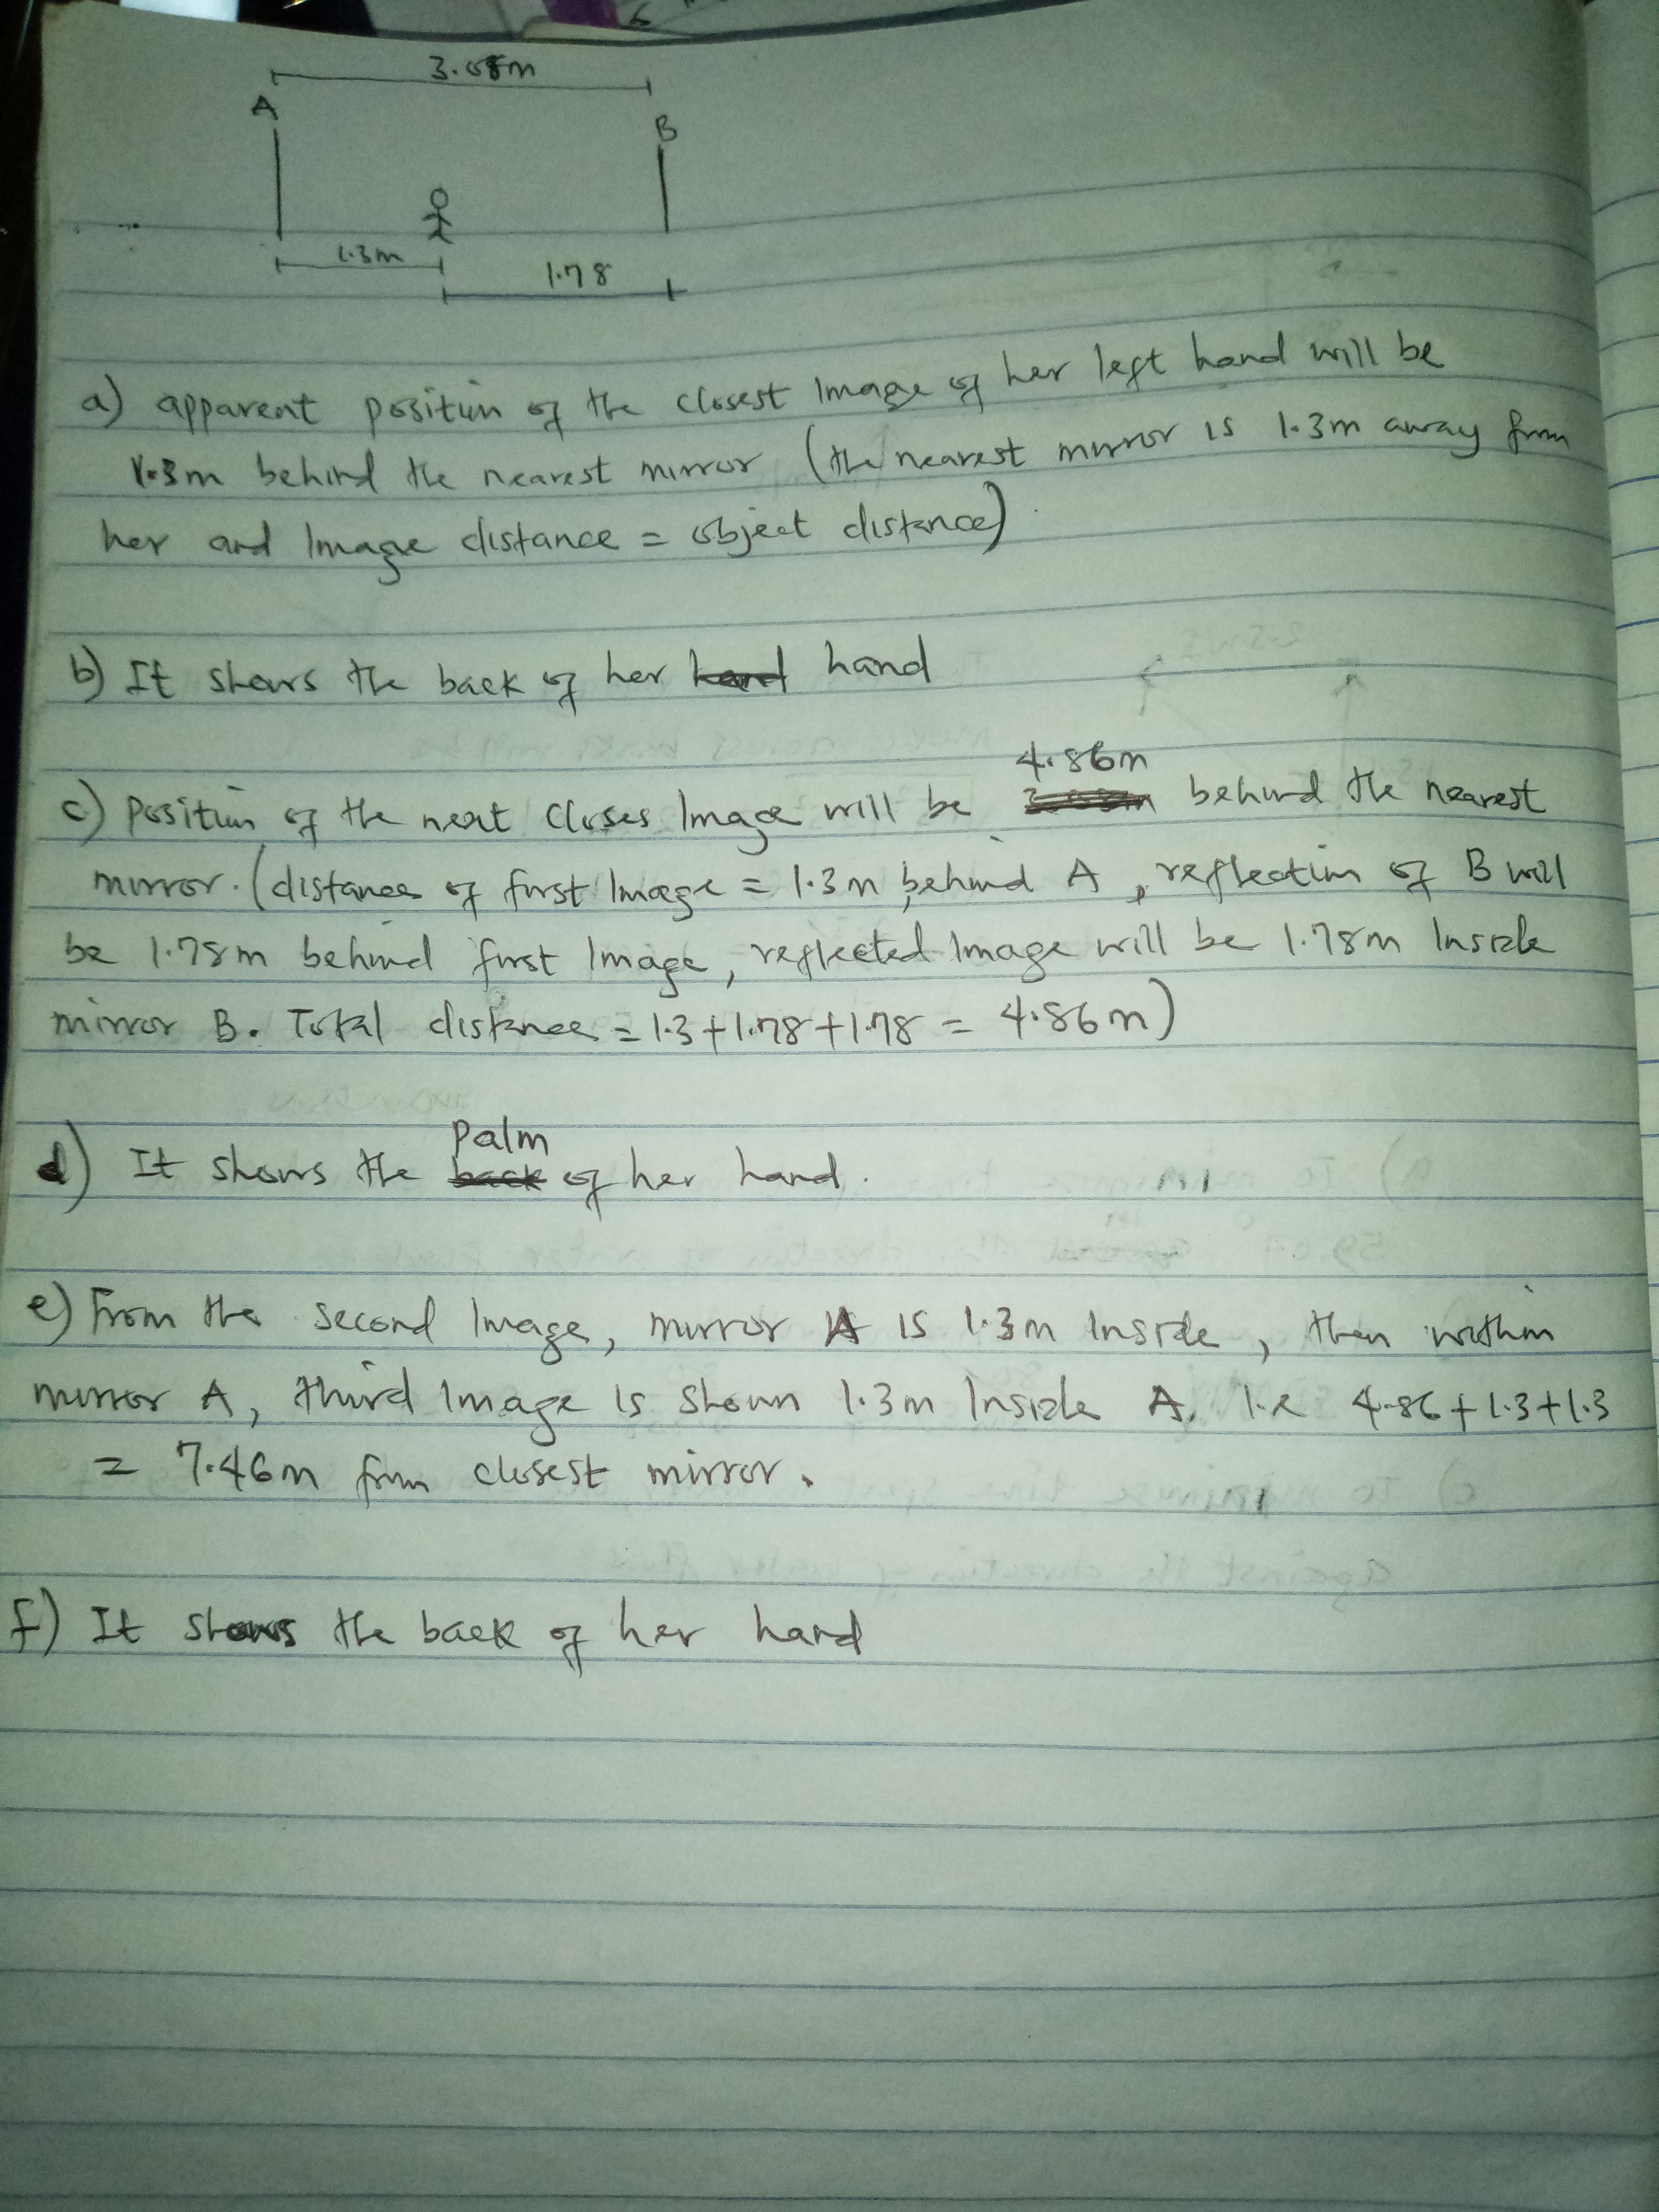 3.08m
A
B
1.3m
1.78
a) apparent position of the closest Image of her left hand will be
1.3m behind the nearest mirror (the nearest mirror is 1.3m away from
her and Image distance = object distance)
b) It shows the back of her hand
4.86m
c) position of the next closes Image will be behind the nearest
mirror. (distance of first Image = 1.3m behind A, reflection of B will
be 1.78m behind first Image, reflected Image will be 1.78m Inside
mirror B. Total distance = 1.3+1.78+1.78 = 4.86m)
palm
d) It shows the back of her hand.
e) From the second Image, mirror A is 1.3m Inside, then within
mirror A, third Image is shown 1.3m Inside A. I.e 4.86+1.3+1.3
= 7.46m from closest mirror.
f) It shows the back of her hand